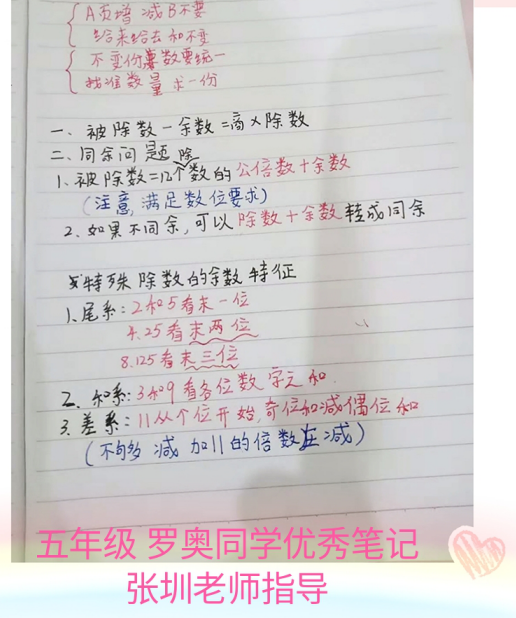 A页增减B不要
给来给去和不变
不变份数要统一
找准数量求一份
一、被除数－余数＝商×除数
二、同余问题
1、被除数＝几个除数的公倍数＋余数
（注意，满足数位要求）
2、如果不同余，可以除数＋余数转成同余
特殊除数的余数特征
1、尾系：2和5看末一位
4.25看末两位
8.125看末三位
2、和系：3和9看各位数字之和.
3、差系：11从个位开始，奇位和减偶位和
（不够减加11的倍数在减）
五年级 罗奥同学优秀笔记
张圳老师指导